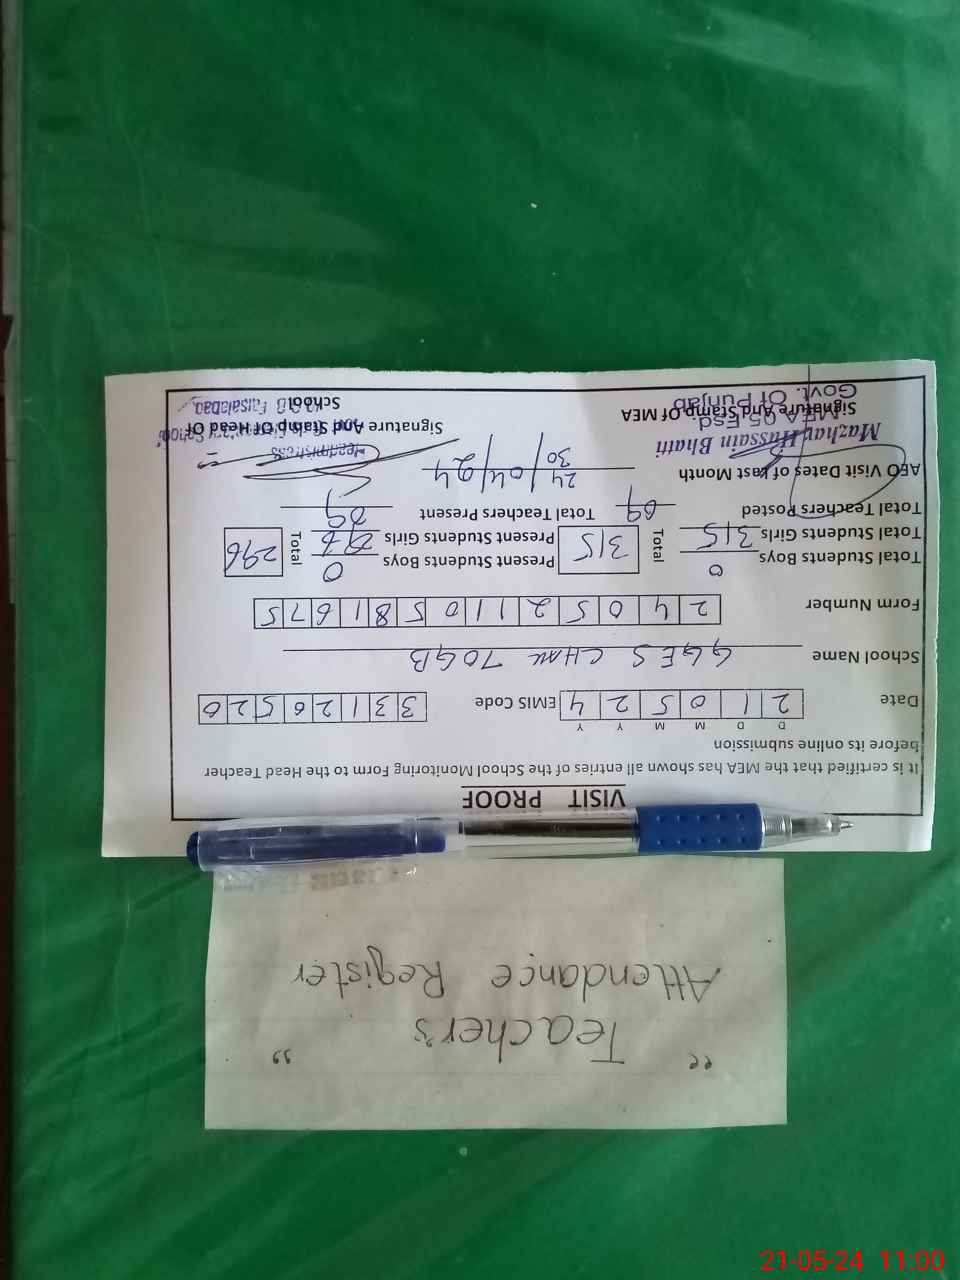 " Teacher's "
Attendance Register
VISIT PROOF
It is certified that the MEA has shown all entries of the School Monitoring Form to the Head Teacher
before its online submission
D D M M Y Y
Date 2 1 0 5 2 4 EMIS Code 3 3 1 2 6 5 2 6
School Name GGES CHAK 70GB
Form Number 2 4 0 5 2 1 1 0 5 8 1 6 7 5
Total Students Boys 0 Total 315 Present Students Boys 0 Total 296
Total Students Girls 315 Present Students Girls 296
Total Teachers Posted 09 Total Teachers Present 09
AEO Visit Dates of Last Month 24/30/04/24
Mazhar Hussain Bhatti Headmistress
MEA 05 Fsd. Govt. Girls Elementary School
Signature And Stamp Of MEA Signature And Stamp Of Head Of
Govt. Of Punjab School G.B Faisalabad
21-05-24 11:00